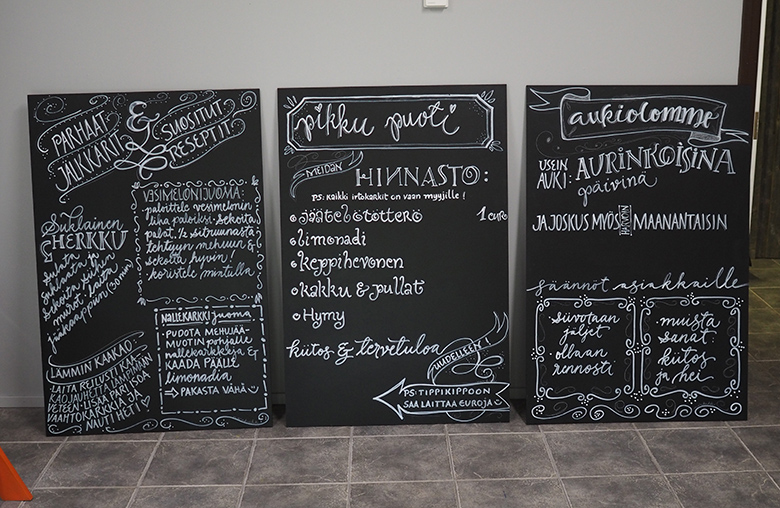 PARHAAT
JÄLKKÄRIT
&
SUOSITUT
RESEPTIT
Suklainen
HERKKU
Sulata
suklaata ja
Sekoita siihen
murot. Laita
jääkaappiin (30min)
VESIMELONIJUOMA:
paloittele vesimelonin-
liha paloiksi. Sekoita
palat, 1/2 sitruunasta
tehtyyn mehuun &
sekoita hyvin!
koristele mintulla
NALLEKARKKIJUOMA
PUDOTA MEHUJÄÄ-
MUOTIN POHJALLE
nallekarkkeja &
KAADA PÄÄLLE
limonadia
→ PAKASTA VÄHÄ
LÄMMIN KAAKAO:
LAITA REILUSTI KAA
KAOJAUHETTA LÄMPIMÄÄN
VETEEN. LISÄÄ PARI ISOA
VAAHTOKARKKIA JA
NAUTI HETI
pikku puoti
MEIDÄN
HINNASTO:
PS: kaikki irtokarkit on vaan myyjille!
jäätelötötterö 1 euro
limonadi
keppihevonen
kakku & pullat
Hymy
kiitos & tervetuloa
UUDELLEEN
PS: TIPPIKIPPOON
SAA LAITTAA EUROJA
aukiolomme
USEIN
AUKI: AURINKOISINA
päivinä
JA JOSKUS MYÖS HARVOIN MAANANTAISIN
säännöt asiakkaille
siivotaan
jäljet
ollaan
rennosti
muista
sanat:
kiitos
ja hei